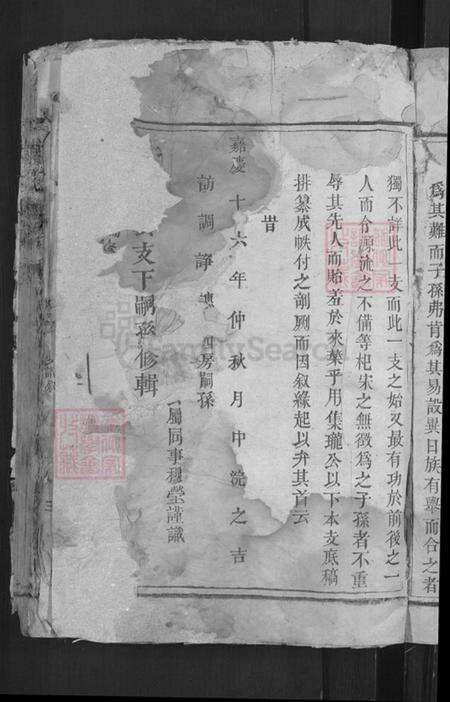 爲其難而子孫弗肯爲其易設異日族有舉而合之者
獨不詳此一支而此一支之始又最有功於前後之一
人而令源流之不備等杞宋之無徵爲之子孫者不重
辱其先人而貽羞於來葉乎用集瓏公以下本支底稿
排纂成帙付之剞劂而因叙緣起以弁其首云
昔
嘉慶十六年仲秋月中浣之吉
調諍 四房嗣孫
支下嗣孫修輯
屬同事 瑩謹識
FamilySearch